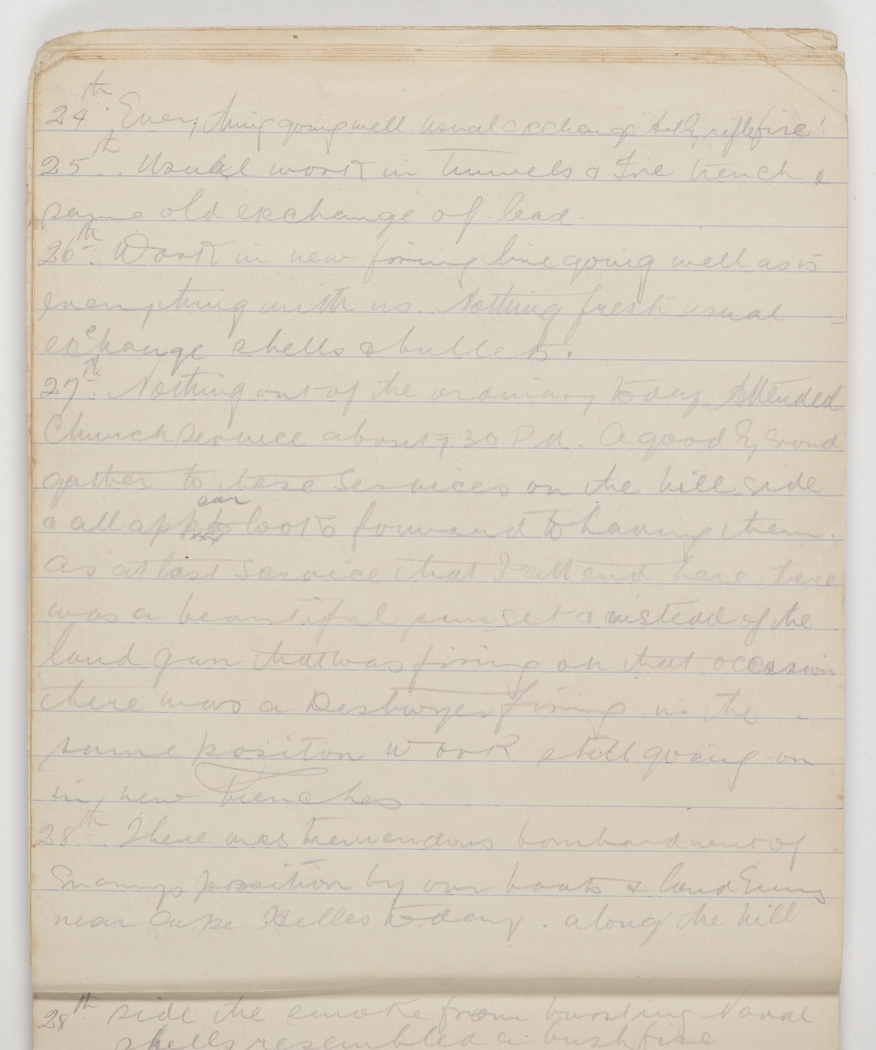 24th. Everything going well. usual exchange Arty, riflefire!
25th. Usual work in tunnels & Fire trench &
same old exchange of lead.
26th. Work in new firing line going well as is
everything with us. Nothing fresh usual
exchange shells & bullets.
27th. Nothing out of the ordinary today. Attended
Church service about 7 30 P.M. A good crowd
gather to these Services on the hill side
& all appear to look forward to having them.
As at last Service that I attend here there
was a beautiful sunset & instead of the
land gun that was firing on that occasion
there was a Destroyer firing in the
same positon work still going on
in new trenches
28th. There was tremendous bombardment of
Enemys possition by our boats & land Guns
near Cape Helles today. along the hill
28th side the smoke from bursting Naval
shells resembled a bushfire